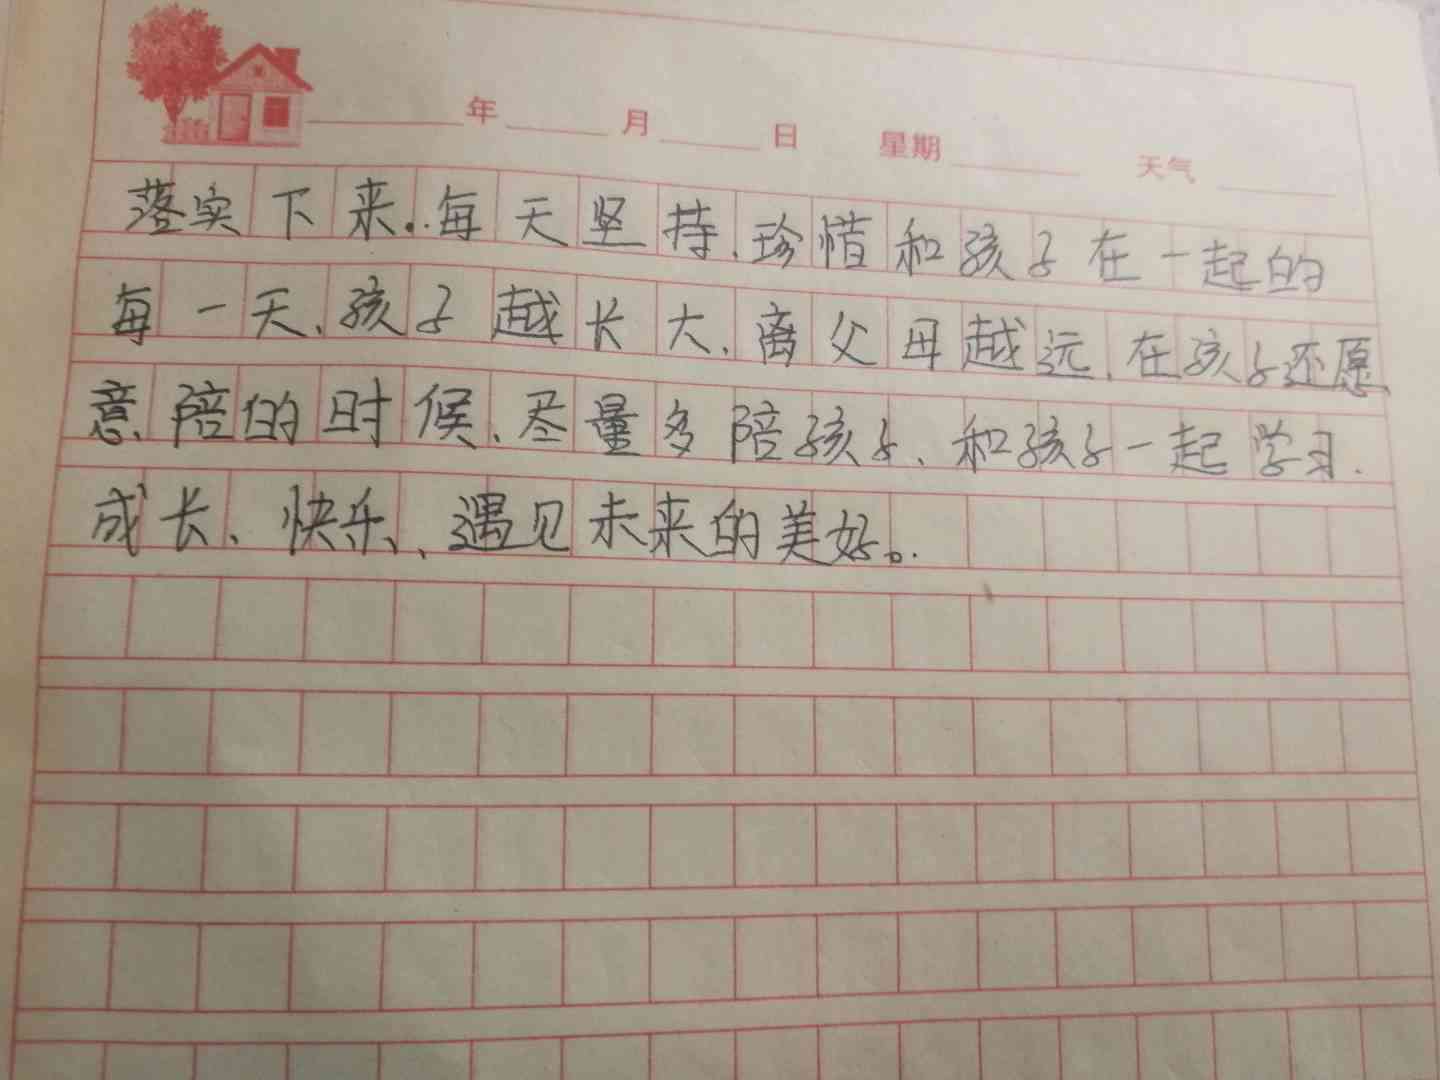 年 月 日 星期 天气
落实下来..每天坚持、珍惜和孩子在一起的
每一天、孩子越长大、离父母越远、在孩子还愿
意、陪的时候、尽量多陪孩子、和孩子一起学习.
成长、快乐、、遇见未来的美好。.